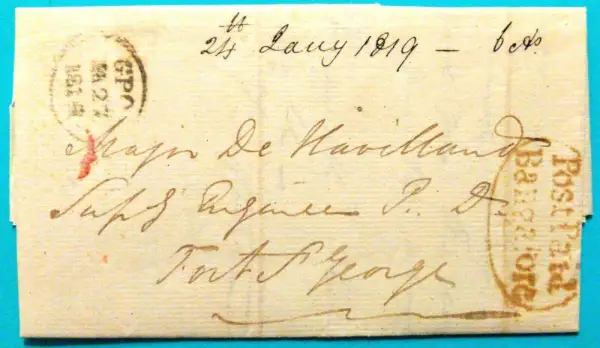 24th Jany 1819 — 6 As
GPO
JA 27
1819
Major De Havilland
Supg Engineer P. D.
Fort St George
Post Paid
Bangalore